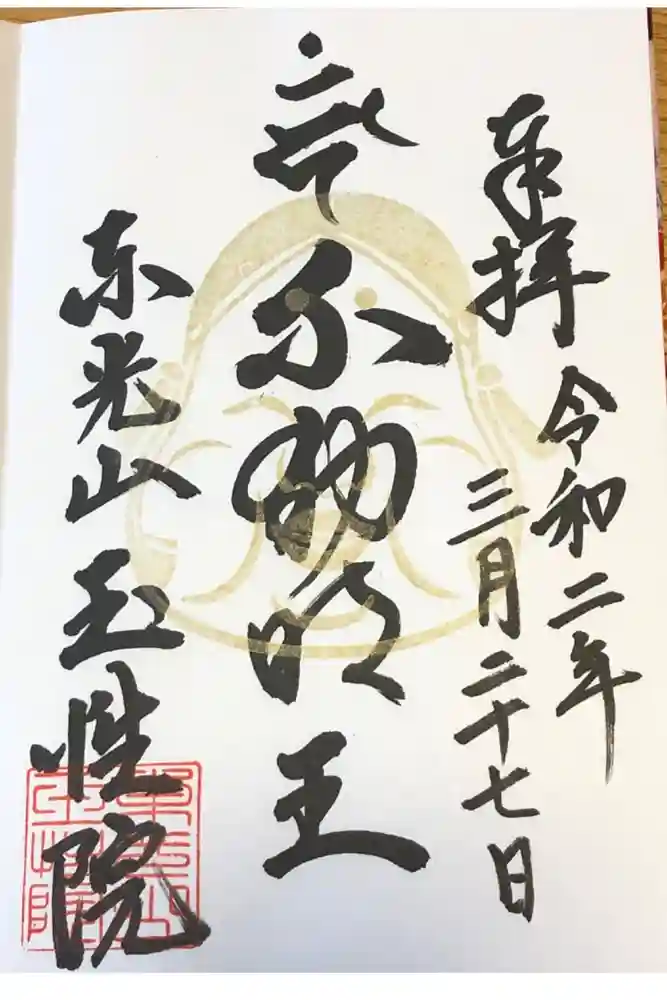 奉拝
令和二年
三月二十七日
不動明王
东光山
玉性院